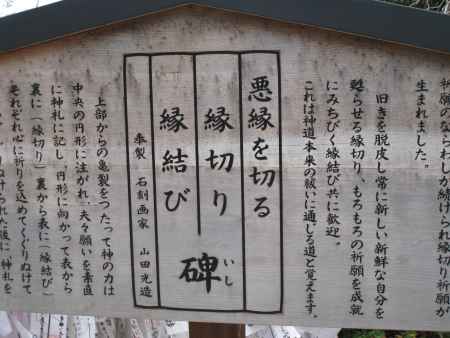 祈願のならわしが続けられ縁切り祈願が
生まれました。
旧きを脱皮し常に新しい新鮮な自分を
甦らせる縁切り、もろもろの祈願を成就
にみちびく縁結び共に歓迎。
これは神道本来の祓いに通じる道と覚えます。
悪縁を切る
縁切り
縁結び
碑
いし
奉製 石刻画家 山田光造
上部からの亀裂をつたって神の力は
中央の円形に注がれ、夫々願いを素直
に神札に記し、円形に向かって表から
裏に(縁切り)裏から表に(縁結び)
それぞれ心に祈りを込めてくぐりぬけて
りぬけられた後に(神札を